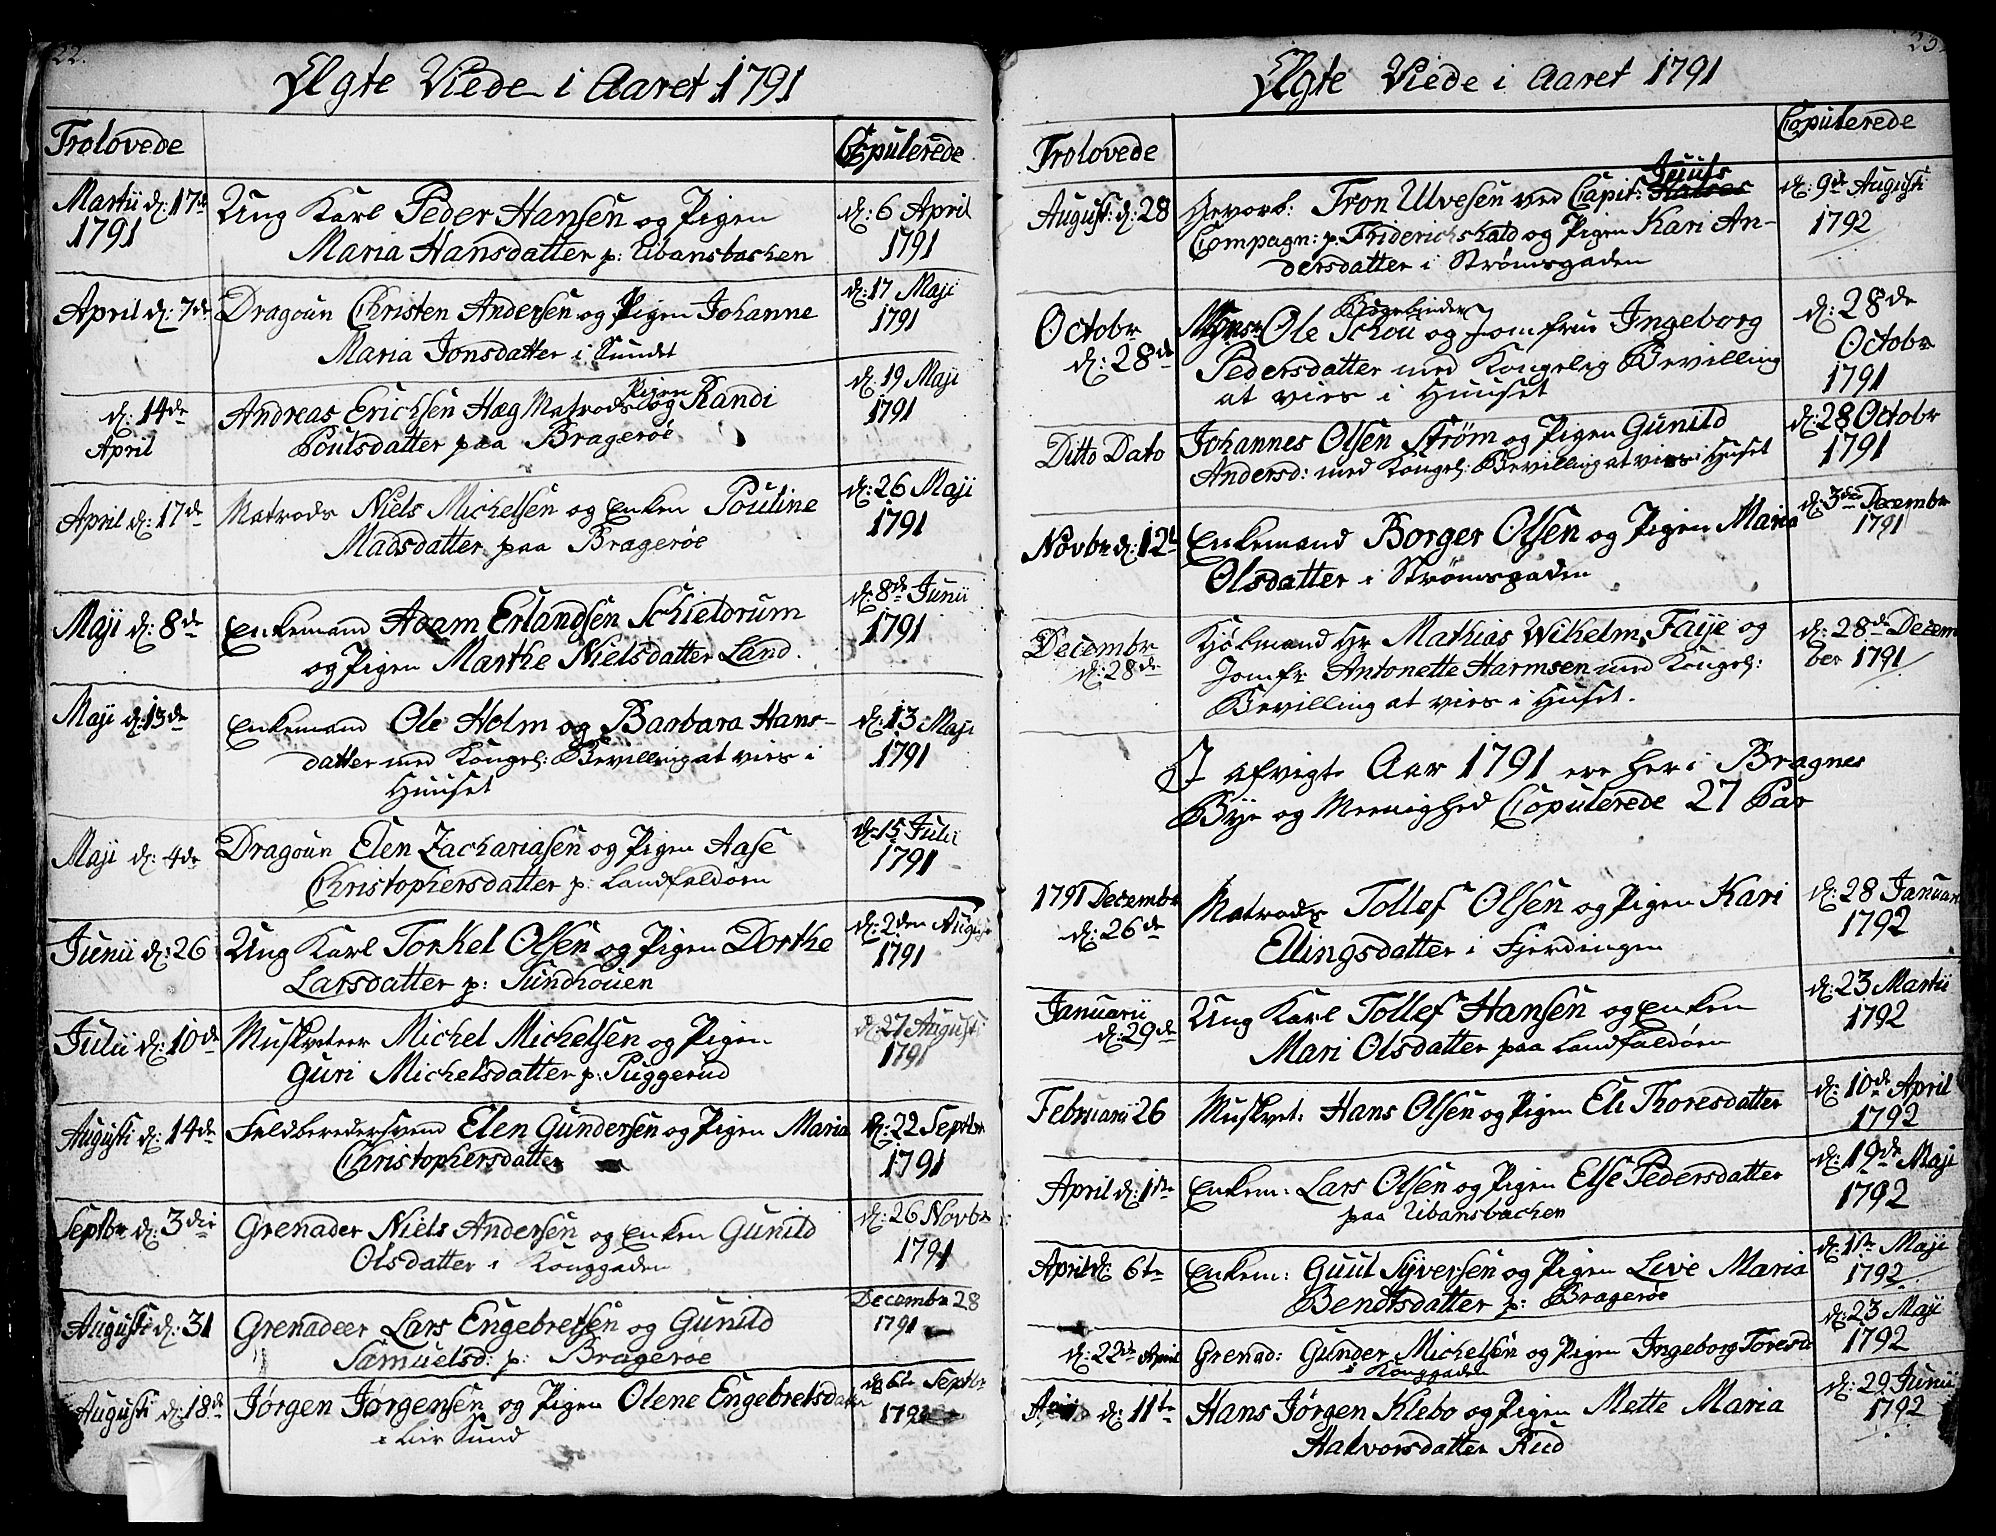 22.
Ægte Viede i Aaret 1791
Trolovede
Copulerede
Martii d: 17de
1791
Ung Karl Peder Hansen og Pigen
Maria Hansdatter p: Ubansbachen
d: 6 April
1791
April d: 7de
Dragoun Christen Andersen og Pigen Johanne
Maria Jonsdatter i Sundet
d: 17 Maji
1791
d: 14de
April
Andreas Erichsen Hæg Matrods og Pigen Randi
Poulsdatter paa Bragerøe
d: 19 Maji
1791
April d: 17de
Matrods Niels Michelsen og Enken Pouline
Madsdatter paa Bragerøe
d: 26 Maji
1791
Maji d: 8de
Enkemand Adam Erlandsen Schieldrum
og Pigen Marthe Nielsdatter Land.
d: 8de Junii
1791
Maji d: 13de
Enkemand Ole Holm og Barbara Hans-
datter med Kongel: Bevilling at vies i
Huuset
d: 13 Maji
1791
Maji d: 4de
Dragoun Elen Zachariasen og Pigen Aase
Christophersdatter p: Landfaldøen
d: 15 Julii
1791
Junii d: 26
Ung Karl Torkel Olsen og Pigen Dorthe
Larsdatter p: Sundhouen
d: 2den Augusti
1791
Julii d: 10de
Muskveteer Michel Michelsen og Pigen
Guri Michelsdatter p: Puggerud
d: 27 Augusti
1791
Augusti d: 14de
Feldberedersvend Elen Gundersen og Pigen Maria
Christophersdatter
d: 22 Septbr
1791
Septbr d: 3die
Grenader Niels Andersen og Enken Gunild
Olsdatter i Konggaden
d: 26 Novbr
1791
Augusti d: 31
Grenadeer Lars Engebretsen og Gunild
Samuelsd: p: Bragerøe
Decembr 28
1791
Augusti d: 18de
Jørgen Jørgensen og Pigen Olene Engebretsdatter
i Lier Sund
d: 6te Septbr
1792
23.
Ægte Viede i Aaret 1791
Trolovede
Copulerede
August: d: 28
Hervorb: Tron Ulvesen ved Capit: Juuls
Compagn: p: Friderichshald og Pigen Kari An-
dersdatter i Strømsgaden
d: 9de Augusti
1792
Octobr
d: 28de
Monsr Ole Schou Bogebinder og Jomfrue Ingeborg
Pedersdatter med Kongelig Bevilling
at vies i Huuset
d: 28de
Octobr
1791
Ditto Dato
Johannes Olsen Strøm og Pigen Gunild
Andersd: med Kongel: Bevilling at vies i Huset
d: 28 Octobr
1791
Novbr d: 12te
Enkemand Borger Olsen og Pigen Maria
Olsdatter i Strømsgaden
d: 3die Decembr
1791
Decembr
d: 28de
Kjøbmand Hr Mathias Wilhelm Faye og
Jomfr Antonette Harmsen med Kongel:
Bevilling at vies i Huset.
d: 28de Decem
ber 1791
I afvigte Aar 1791 ere her i Bragnes
Bye og Meenighed Copulerede 27 Par
1791 Decembr
d: 26de
Matrods Tollef Olsen og Pigen Kari
Ellingsdatter i Fjerdingen
d: 28 Januar
1792
Januarii
d: 29de
Ung Karl Tollef Hansen og Enken
Mari Olsdatter paa Landfaldøen
d: 23 Martii
1792
Februarii 26
Muskvet: Hans Olsen og Pigen Eli Thoresdatter
d: 10de April
1792
April d: 1ste
Enkem: Lars Olsen og Pigen Else Pedersdatter
paa Ubansbachen
d: 19de Maji
1792
April d: 6te
Enkem: Guul Syversen og Pigen Live Maria
Bendtsdatter p: Bragerøe
d: 1ste Maji
1792
d: 22de April
Grenad: Gunder Michelsen og Pigen Ingeborg Toresd
i Konggaden
d: 23 Maji
1792
d: 11te
Hans Jørgen Klebo og Pigen Mette Maria
Halvorsdatter Rud
d: 29 Junii
1792